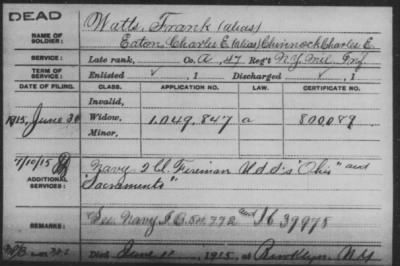 DEAD
NAME OF SOLDIER: Watts, Frank (alias)
Eaton, Charles E. (alias) Chinnock Charles E.
SERVICE: Late rank, Co. A, 47 Reg't N.Y. Mil. Inf
TERM OF SERVICE: Enlisted ✓, 1 Discharged ✓, 1
DATE OF FILING. CLASS. APPLICATION NO. LAW. CERTIFICATE NO.
Invalid,
1915, June 30 Widow, 1.049.847 a 800089
Minor,
7/10/15 Navy 2 Cl. Fireman U.S.S. "Ohio" and
ADDITIONAL SERVICES: "Sacramento"
REMARKS: See Navy 16 39978
Died June 1, 1915, at Brooklyn, N.Y.